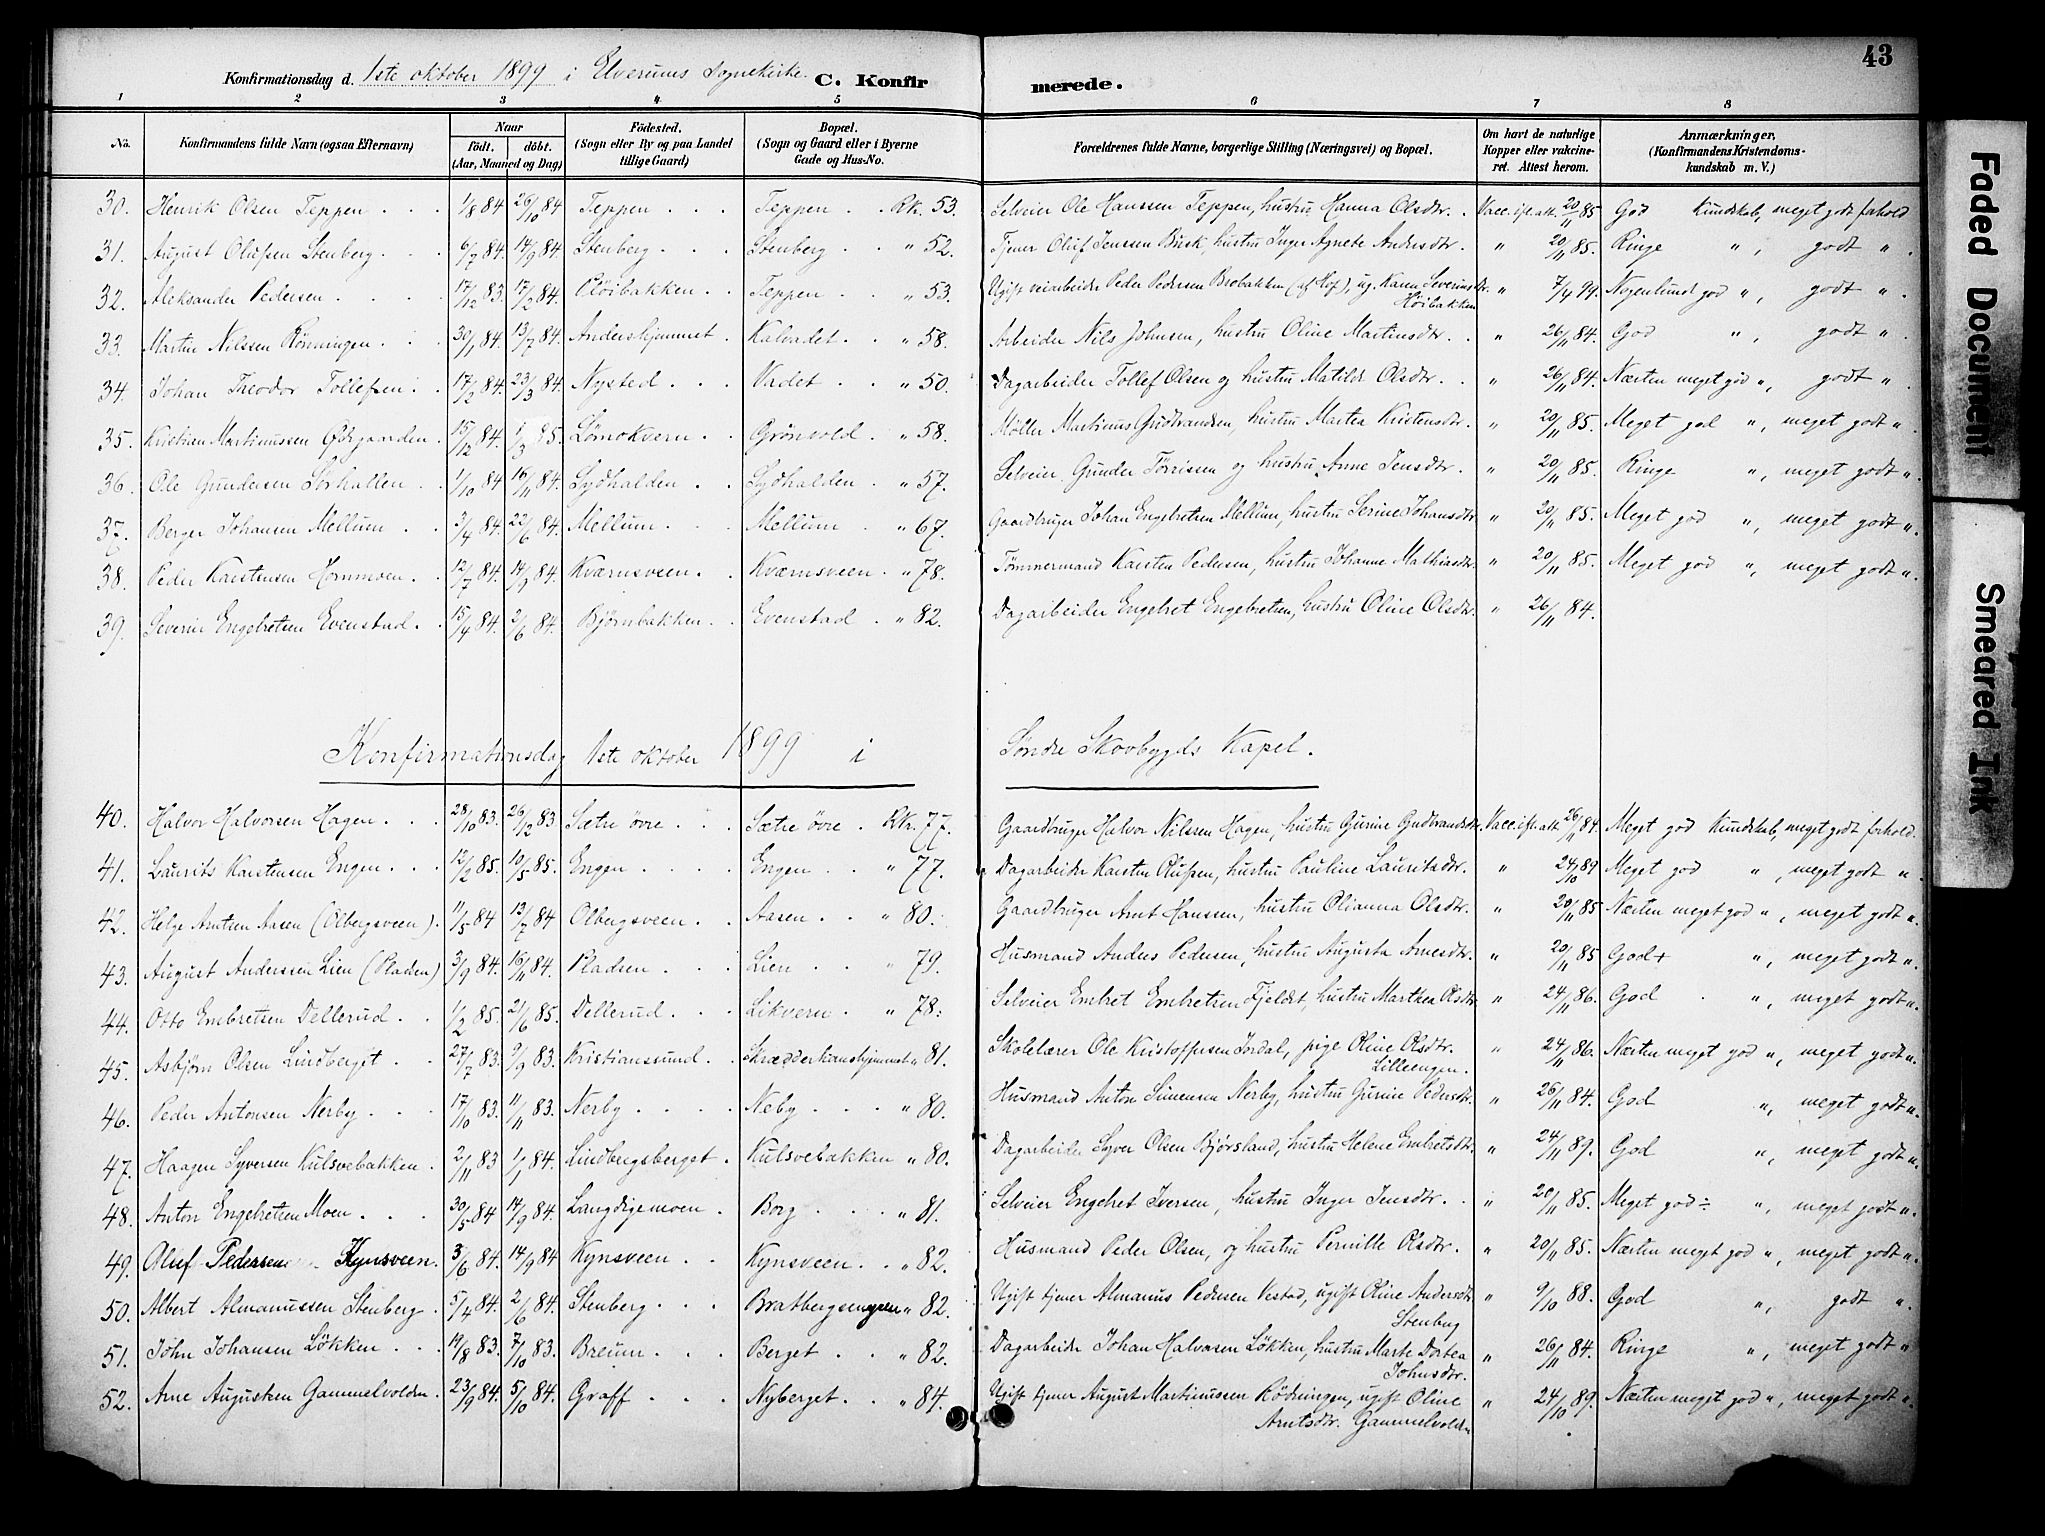 43
Konfirmationsdag d. 1ste oktober 1899 i Elverums Sognekirke. C. Konfirmerede.
1 2 3 4 5 6 7 8
No. Konfirmandens fulde Navn (ogsaa Efternavn) Naar födt. döbt. (Aar, Maaned og Dag) Födested. (Sogn eller By og paa Landet tillige Gaard) Bopæl. (Sogn og Gaard eller i Byerne Gade og Hus-No. Forældrenes fulde Navne, borgerlige Stilling (Næringsvei) og Bopæl. Om havt de naturlige Kopper eller vakcineret. Attest herom. Anmærkninger. (Konfirmandens Kristendomskundskab m. V.)
30. Henrik Olsen Teppen 1/8 84 26/10 84 Teppen Teppen Rk. 53. Selveier Ole Hanssen Teppen, hustru Hanna Olsdtr. Vacc. ifl. att. 20/11 85 God kundskab, meget godt forhold
31. August Olufsen Stenberg 6/7 84. 14/9 84. Stenberg Stenberg " 52. Tjener Oluf Jenssen Busk, hustru Inger Agnete Andersdtr. " 20/11 85. Ringe ", godt ".
32. Aleksander Pedersen 17/12 83. 17/2 84. Teppen " 53. Ugift veiarbeider Peder Pedersen Brobakken (af Hof), ug. Karen Severinsdtr. Höibakken " 7/4 99. Nogenlund god ", godt ".
33. Martin Nilssen Rönningen 30/1 84. 13/7 84. Anderskjemmet Kalvadet " 58. Arbeider Nils Johnsen, hustru Oline Martinsdtr. " 26/11 84. God ", godt ".
34. Johan Theodor Tollefsen 17/2 84. 23/3 84. Nysted Vadet " 50. Dagarbeider Tollef Olsen og hustru Matilde Olsdtr. " 26/11 84. Næsten meget god ", godt ".
35. Kristian Martinussen Ödegaarden 15/12 84. 8/3 85. Lömokvern Grönvold " 58. Möller Martinus Gudbrandsen, hustru Martea Kristensdtr. " 20/11 85. Meget god ", meget godt ".
36. Ole Gundersen Sörhallen 1/10 84 16/11 84. Sydhalden Sydhalden " 57. Selveier Gunder Törrissen og hustru Anne Jensdtr. " 20/11 85. Ringe ", meget godt ".
37. Berger Johansen Mellum 3/4 84. 22/6 84. Mellum Mellum " 67. Gaardbruger Johan Engebretsen Mellum, hustru Serine Johansdtr. " 20/11 85. Meget god ", meget godt ".
38. Peder Karstensen Hornmoen 12/7 84. 14/9 84. Kværnsveen Kværnsveen " 78. Tömmermand Karsten Pedersen, hustru Johanne Mathiasdtr. " 20/11 85. Meget god ", meget godt ".
39. Severin Engebretsen Evenstad 15/4 84. 2/6 84. Bjørnbakken Evenstad " 82. Dagarbeider Engebret Engebretsen, hustru Oline Olsdtr. " 26/11 84.
Konfirmationsdag 1ste oktober 1899 i Söndre Skovbygds Kapel.
40. Halvor Halvorsen Hagen 28/10 83. 26/12 83 Sætre övre Sætre övre Rk. 77. Gaardbruger Halvor Nilssen Hagen, hustru Gurine Gudbrandsdtr. Vacc. ifl. att. 26/11 84. Meget god kundskab, meget godt forhold.
41. Laurits Karstensen Engen 12/2 85. 10/5 85. Engen Engen " 77. Dagarbeider Karsten Olufsen, hustru Pauline Lauritsdtr. " 24/10 89 Meget god ", meget godt ".
42. Helge Arntsen Aasen (Olbergsveen) 11/5 84 13/7 84 Olbergsveen Aasen " 80. Gaardbruger Arnt Hanssen, hustru Olianna Olsdtr. " 20/11 85 Næsten meget god ", meget godt ".
43. August Anderssen Lien (Pladsen) 3/9 84. 16/11 84. Pladsen Lien " 79. Husmand Anders Pedersen, hustru Augusta Arnesdtr. " 20/11 85 God+ ", meget godt ".
44. Otto Embretsen Dellerud 1/2 85. 21/6 85. Dellerud Likvern " 78. Selveier Embret Embretsen Fjeldet, hustru Marthea Olsdtr. " 24/11 86. God ", meget godt ".
45. Asbjørn Olsen Lindberget 27/7 83. 9/9 83. Kristianssund Skrædderhanshjemmet " 81. Skolelærer Ole Kristoffersen Jordal, pige Oline Olsdtr. Lilleengen. " 24/11 86. Næsten meget god ", meget godt ".
46. Peder Antonsen Nerby 17/10 83. 11/11 83. Nerby Neby " 80. Husmand Anton Simensen Nerby, hustru Gurine Pedersdtr. " 26/11 84. God ", meget godt ".
47. Haagen Syversen Kulsvebakken 2/11 83 1/1 84. Lindbergsberget Kulsvebakken " 80. Dagarbeider Syver Olsen Bjørsland, hustru Helene Embretsdtr. " 24/11 89. God ", meget godt ".
48. Anton Engebretsen Moen 30/5 84 14/9 84. Langdigemoen Borg " 81. Selveier Engebret Iversen, hustru Inger Jensdtr. " 20/11 85. Meget god÷ ", meget godt ".
49. Oluf Pedersen Kynsveen 3/6 84. 14/9 84 Kynsveen Kynsveen " 82. Husmand Peder Olsen, og hustru Pernille Olsdtr. " 20/11 85. Næsten meget god ", meget godt ".
50. Albert Almanussen Stenberg 5/4 84. 2/6 84. Stenberg Bratbergsengen " 82. Ugift tjener Almanus Pedersen Vestad, ugift Oline Andersdtr. Stenberg " 9/10 88. God ", godt ".
51. John Johansen Lökken 19/8 83. 7/10 83. Breum Berget " 82. Dagarbeider Johan Halvorsen Lökken, hustru Marte Dortea Johnsdtr. " 26/11 84. Ringe ", meget godt "
52. Arne Augustsen Gammelvolden 23/9 84. 5/10 84. Graff Nyberget " 84. Ugift tjener August Martinussen Rödningen, ugift Oline Arntsdtr. Gammelvolden " 24/10 89. Næsten meget god ", meget godt ".
Faded Document
Smeared Ink